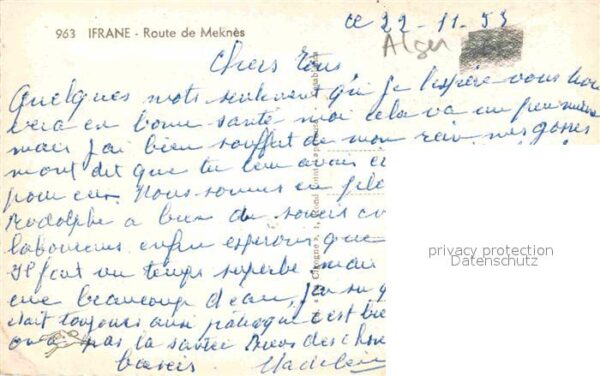 963 IFRANE - Route de Meknès
ce 22-11-53
Alger
Chers tous
Quelques mots seulement qui je l'espère vous trou
vera en bonne santé moi cela va un peu mieux
mais j'ai bien souffert de mon rein mes gosses
mont dit que tu leur avais
pour eux. Nous sommes en ple
Rodolphe a bien du soucis
laboureurs enfin esperons que
Il fait un temps superbe mais
beaucoup d'eau, j'ai su
était toujours aussi c'est bie
on a pas la santé
baisers Madeleine
privacy protection
Datenschutz